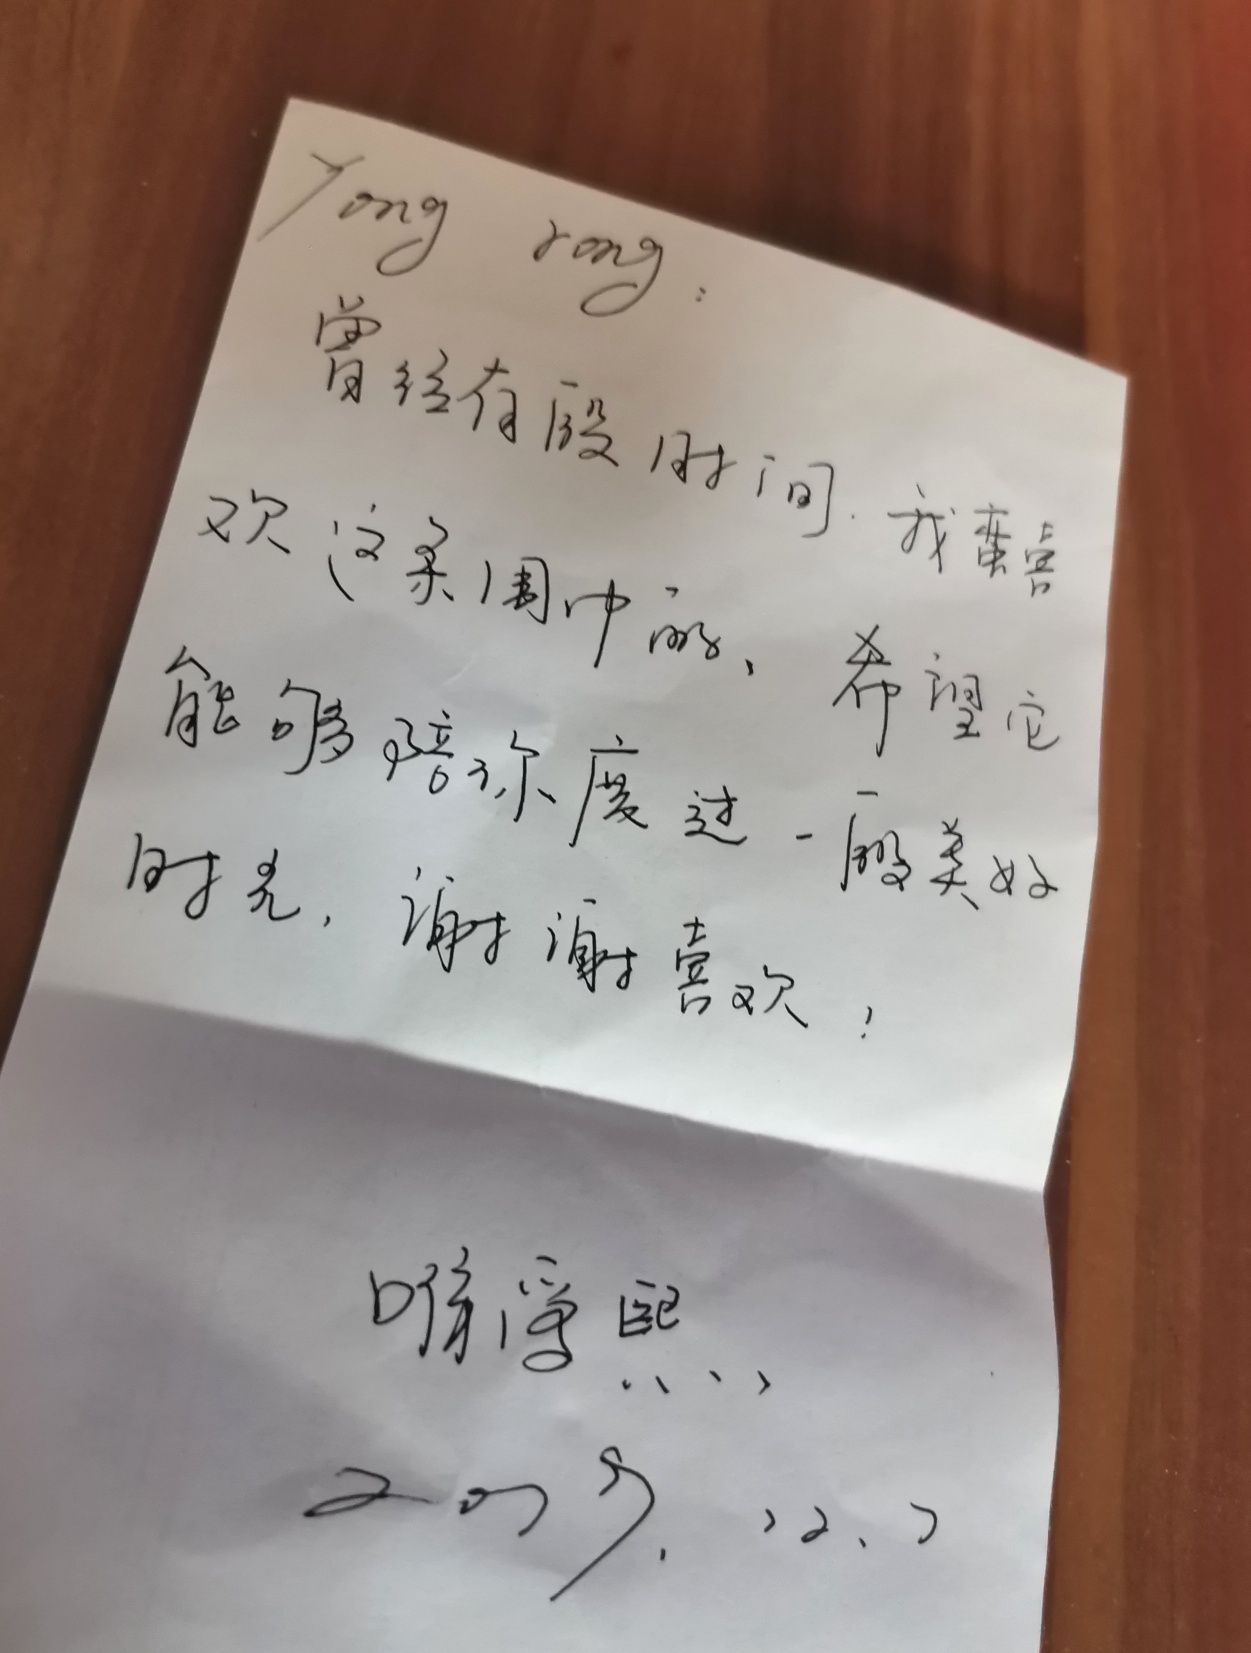 Yong rong:
曾经有段时间.我蛮喜
欢这条围巾的、希望它
能够陪你度过一段美好
时光,谢谢喜欢!
喉潯熙
2019.12.7